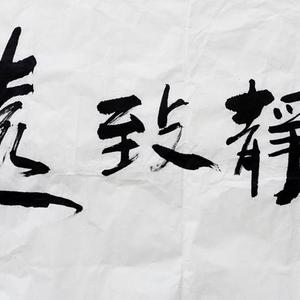 靜致遠